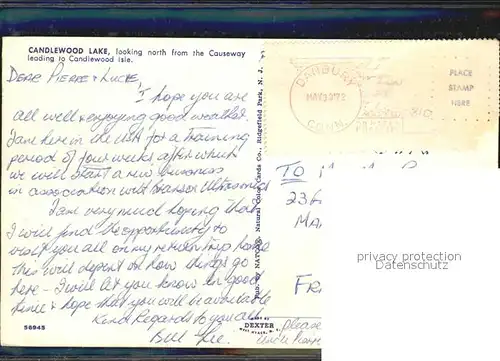 CANDLEWOOD LAKE, looking north from the Causeway
leading to Candlewood Isle.
Dear Pierre & Lucie
I hope you are
all well & enjoying good weather.
I am here in the USA for a training
period of four weeks after which
we will start a new business
in association with Ultrasonics
I am very much hoping that
I will find the opportunity to
visit you all on my return trip home
This will depend on how things go
here - I will let you know in good
time & hope that you will be available
Kind Regards to you all
Bill
56945
Pub. by NATIONAL Natural Color Cards Co., Ridgefield Park, N. J.
DEXTER
DANBURY
MAY 30 '72
CONN.
PLACE
STAMP
HERE
TO
236
MA
FR
please
privacy protection
Datenschutz